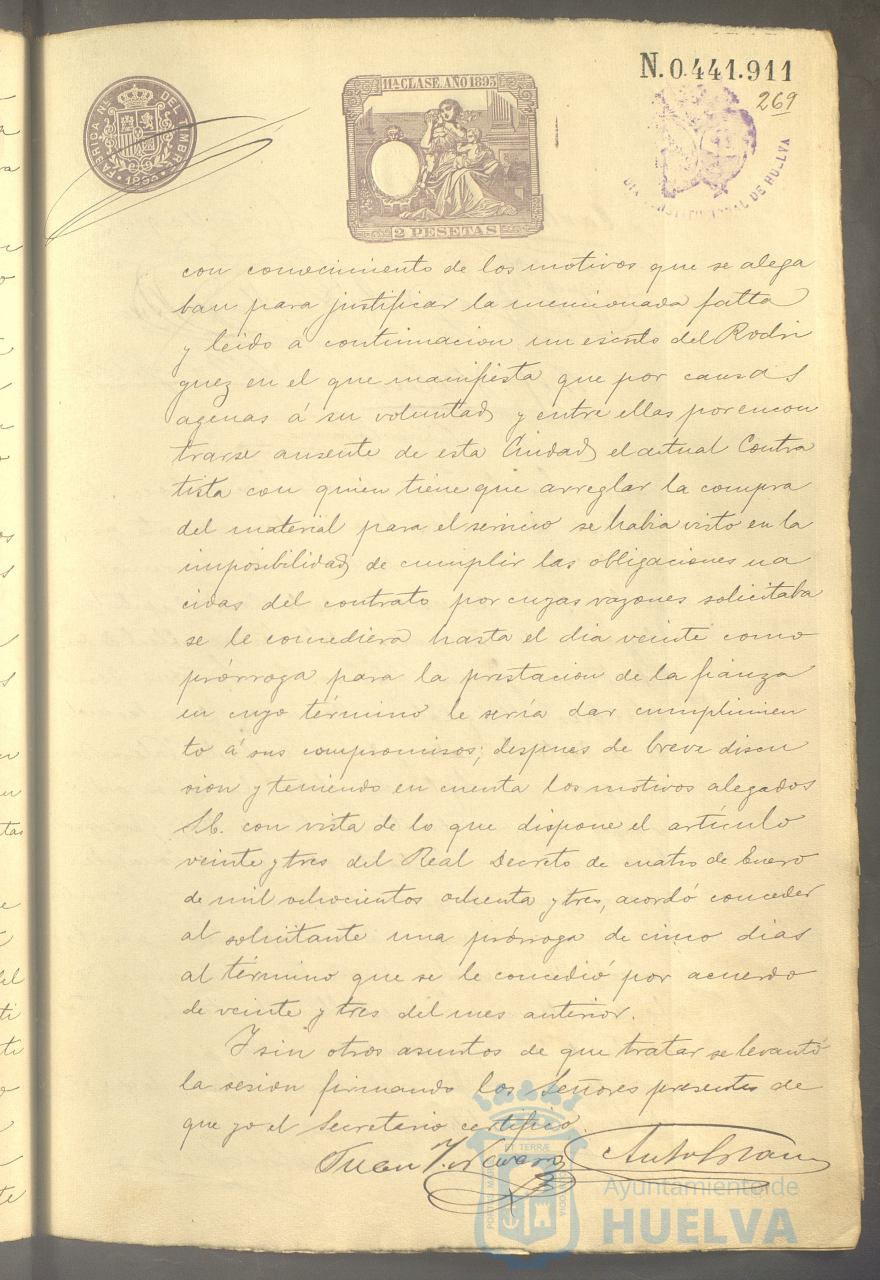 N.0.441.911
269
FABRICA Nª DEL TIMBRE
11ª CLASE. AÑO 1893
2 PESETAS
DE HUELVA
con conocimiento de los motivos que se alega
ban para justificar la mencionada falta
y leido á continuacion un escrito del Rodri
guez en el que manifiesta que por causas
agenas á su voluntad y entre ellas por encon
trarse ausente de esta Ciudad el actual Contra
tista con quien tiene que arreglar la compra
del material para el servicio se habia visto en la
imposibilidad de cumplir las obligaciones na
cidas del contrato por cuyas razones solicitaba
se le concediera hasta el dia veinte como
prórroga para la prestacion de la fianza
en cuyo término le sería dar cumplimien
to á sus compromisos; despues de breve discu
sion y teniendo en cuenta los motivos alegados
con vista de lo que dispone el artículo
veinte y tres del Real Decreto de cuatro de Enero
de mil ochocientos ochenta y tres, acordó conceder
al solicitante una prórroga de cinco dias
al término que se le concedió por acuerdo
de veinte y tres del mes anterior.
Y sin otros asuntos de que tratar se levantó
la sesion firmando los Señores presentes de
que yo el Secretario certifico.
Juan
Ayuntamiento de
HUELVA